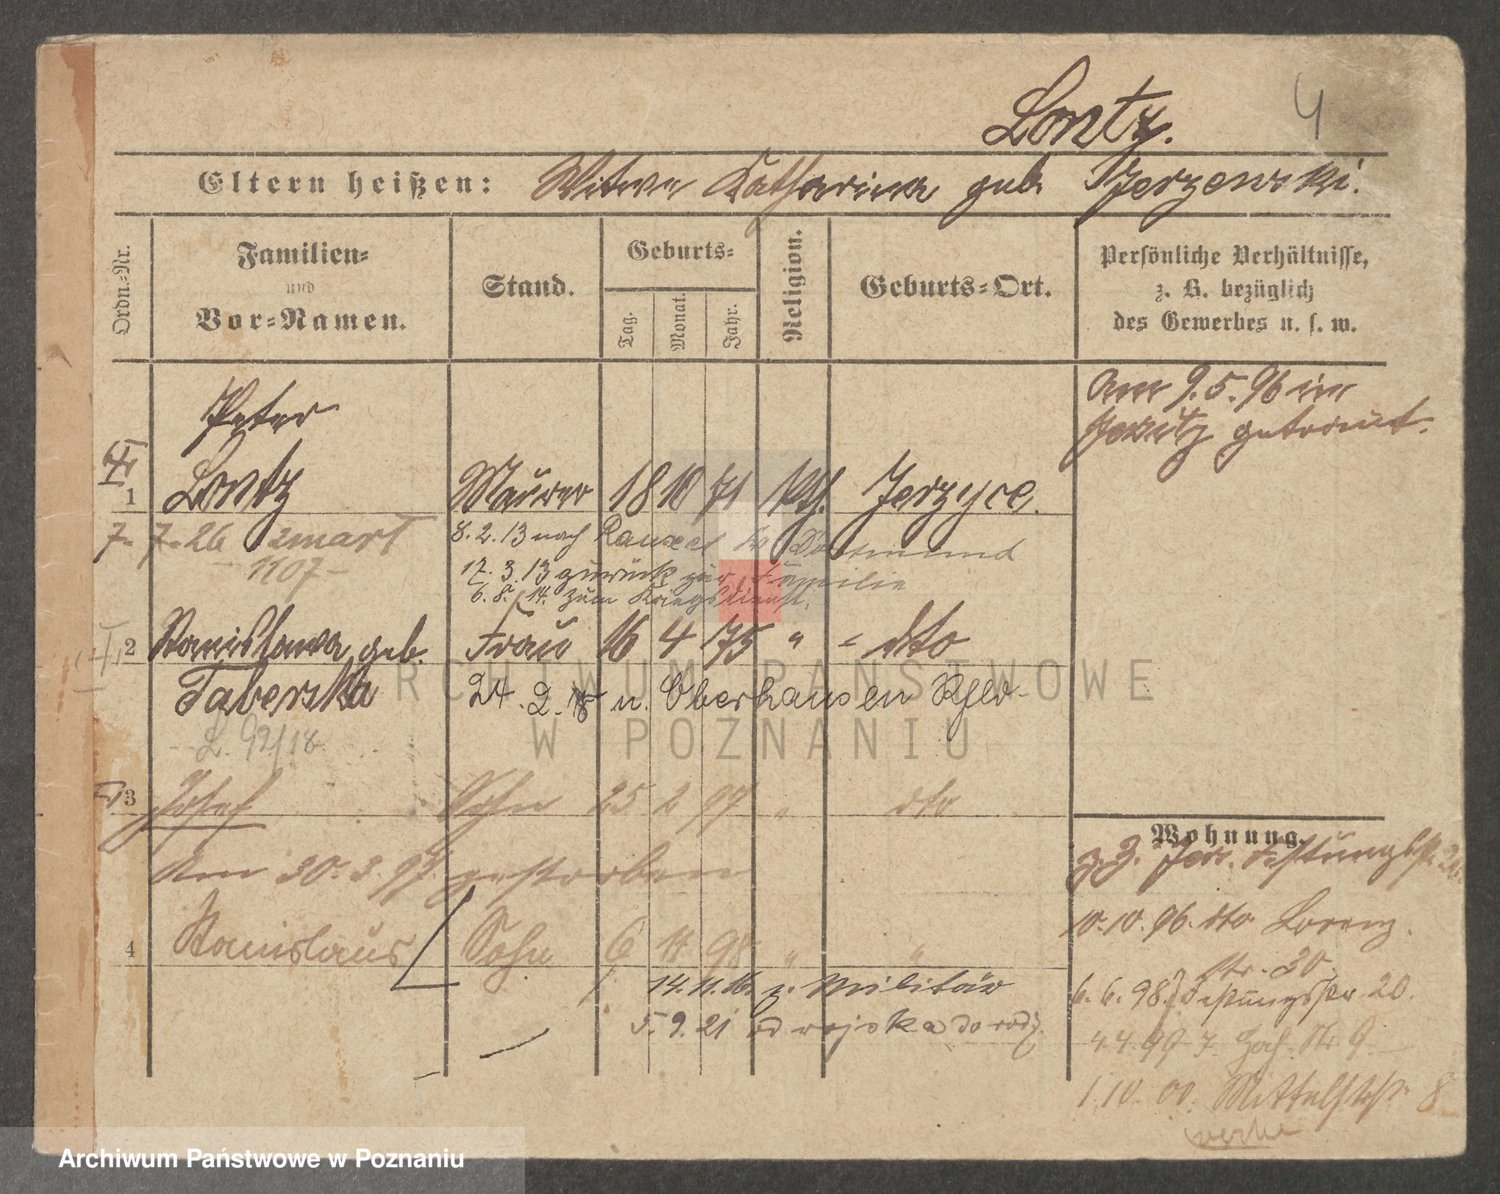 Lontz.
4
Eltern heißen: Witwe Katharina geb. Jerzewski.
Ordn.-Nr.
Familien- und Vor-Namen.
Stand.
Geburts-
Tag.
Monat.
Jahr.
Religion.
Geburts-Ort.
Persönliche Verhältnisse, z. B. bezüglich des Gewerbes u. s. w.
Am 9.5.96 in
Jersitz getraut.
Peter
1 Lontz Maurer 18 10 71 kth. Jerzyce.
7. 7. 26 zmarł
1107
8. 2. 13 nach Rauxel Dortmund
17. 3. 13 zurück zur Familie
6. 8. 14. zum Kriegsdienst.
2 Stanislawa geb. Frau 16 4 75 " - dto
Taberska
24. 2. 18 n. Oberhausen Rhld.
L. 92/18
3 Josef Sohn 25 2 97 " dto
Am 30. 3. 97 gestorben
4 Stanislaus Sohn 6 98 " "
14. 11. 16 z. Militär
5. 9. 21 od wojska do rodz.
Wohnung.
z. Z. Jer. Festungsstr.
10. 10. 96. dto Lorenz.
str. 30
6. 6. 98. Festungsstr. 20.
4.4 99 Str. 9
1. 10. 00. Mittelstr. 8
ARCHIWUM PAŃSTWOWE
W POZNANIU
Archiwum Państwowe w Poznaniu